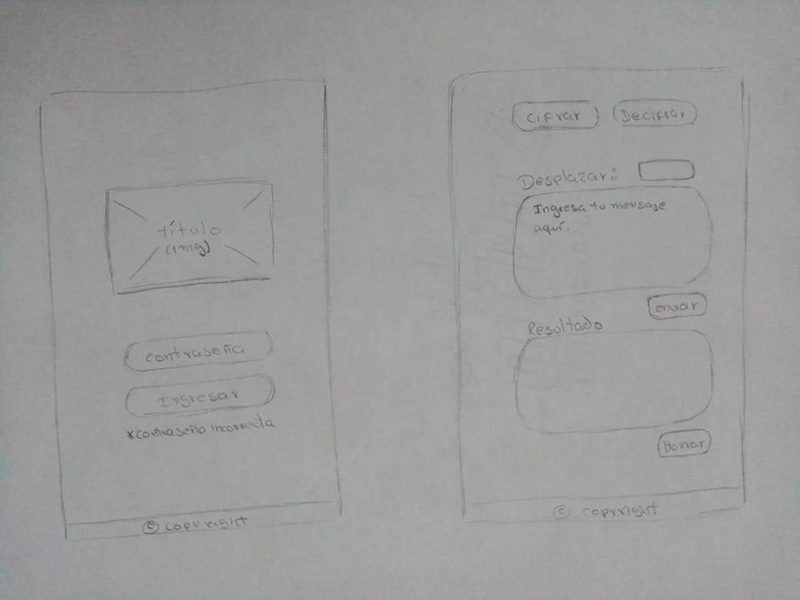 título
(img)
contraseña
Ingresar
*contraseña incorrecta
© copyright
Cifrar
Decifrar
Desplazar:
Ingresa tu mensaje
aquí.
enviar
Resultado
Borrar
© copyright